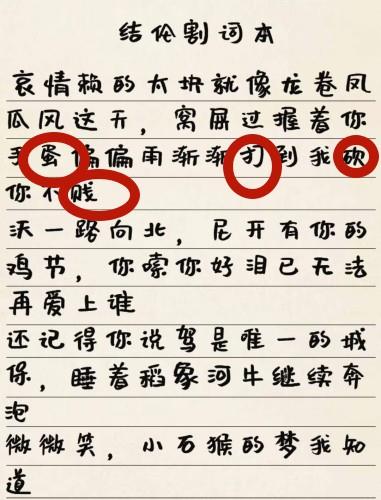 结伦割词本
哀情赖的太块就像龙卷凤
瓜风这天，窝屏过握着你
手蛋偏偏雨渐渐打到我砍
你不贱
沃一路向北，尼开有你的
鸡节，你嗦你好泪已无法
再爱上谁
还记得你说驾是唯一的城
保，睡着稻象河牛继续奔
泡
微微笑，小石猴的梦我知
道